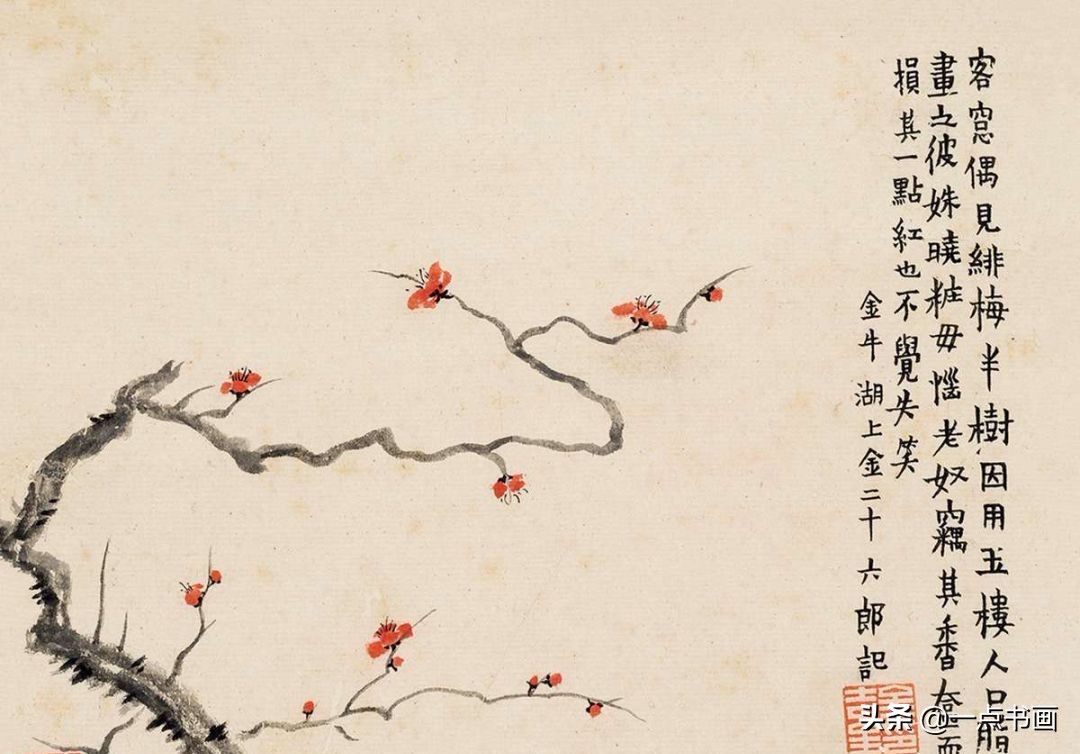 客窓偶見緋梅半樹因用玉樓人口脂
畫之彼姝曉粧毋惱老奴竊其香奩而
損其一點紅也不覺失笑
金牛湖上金二十六郎記
头条 @一点书画